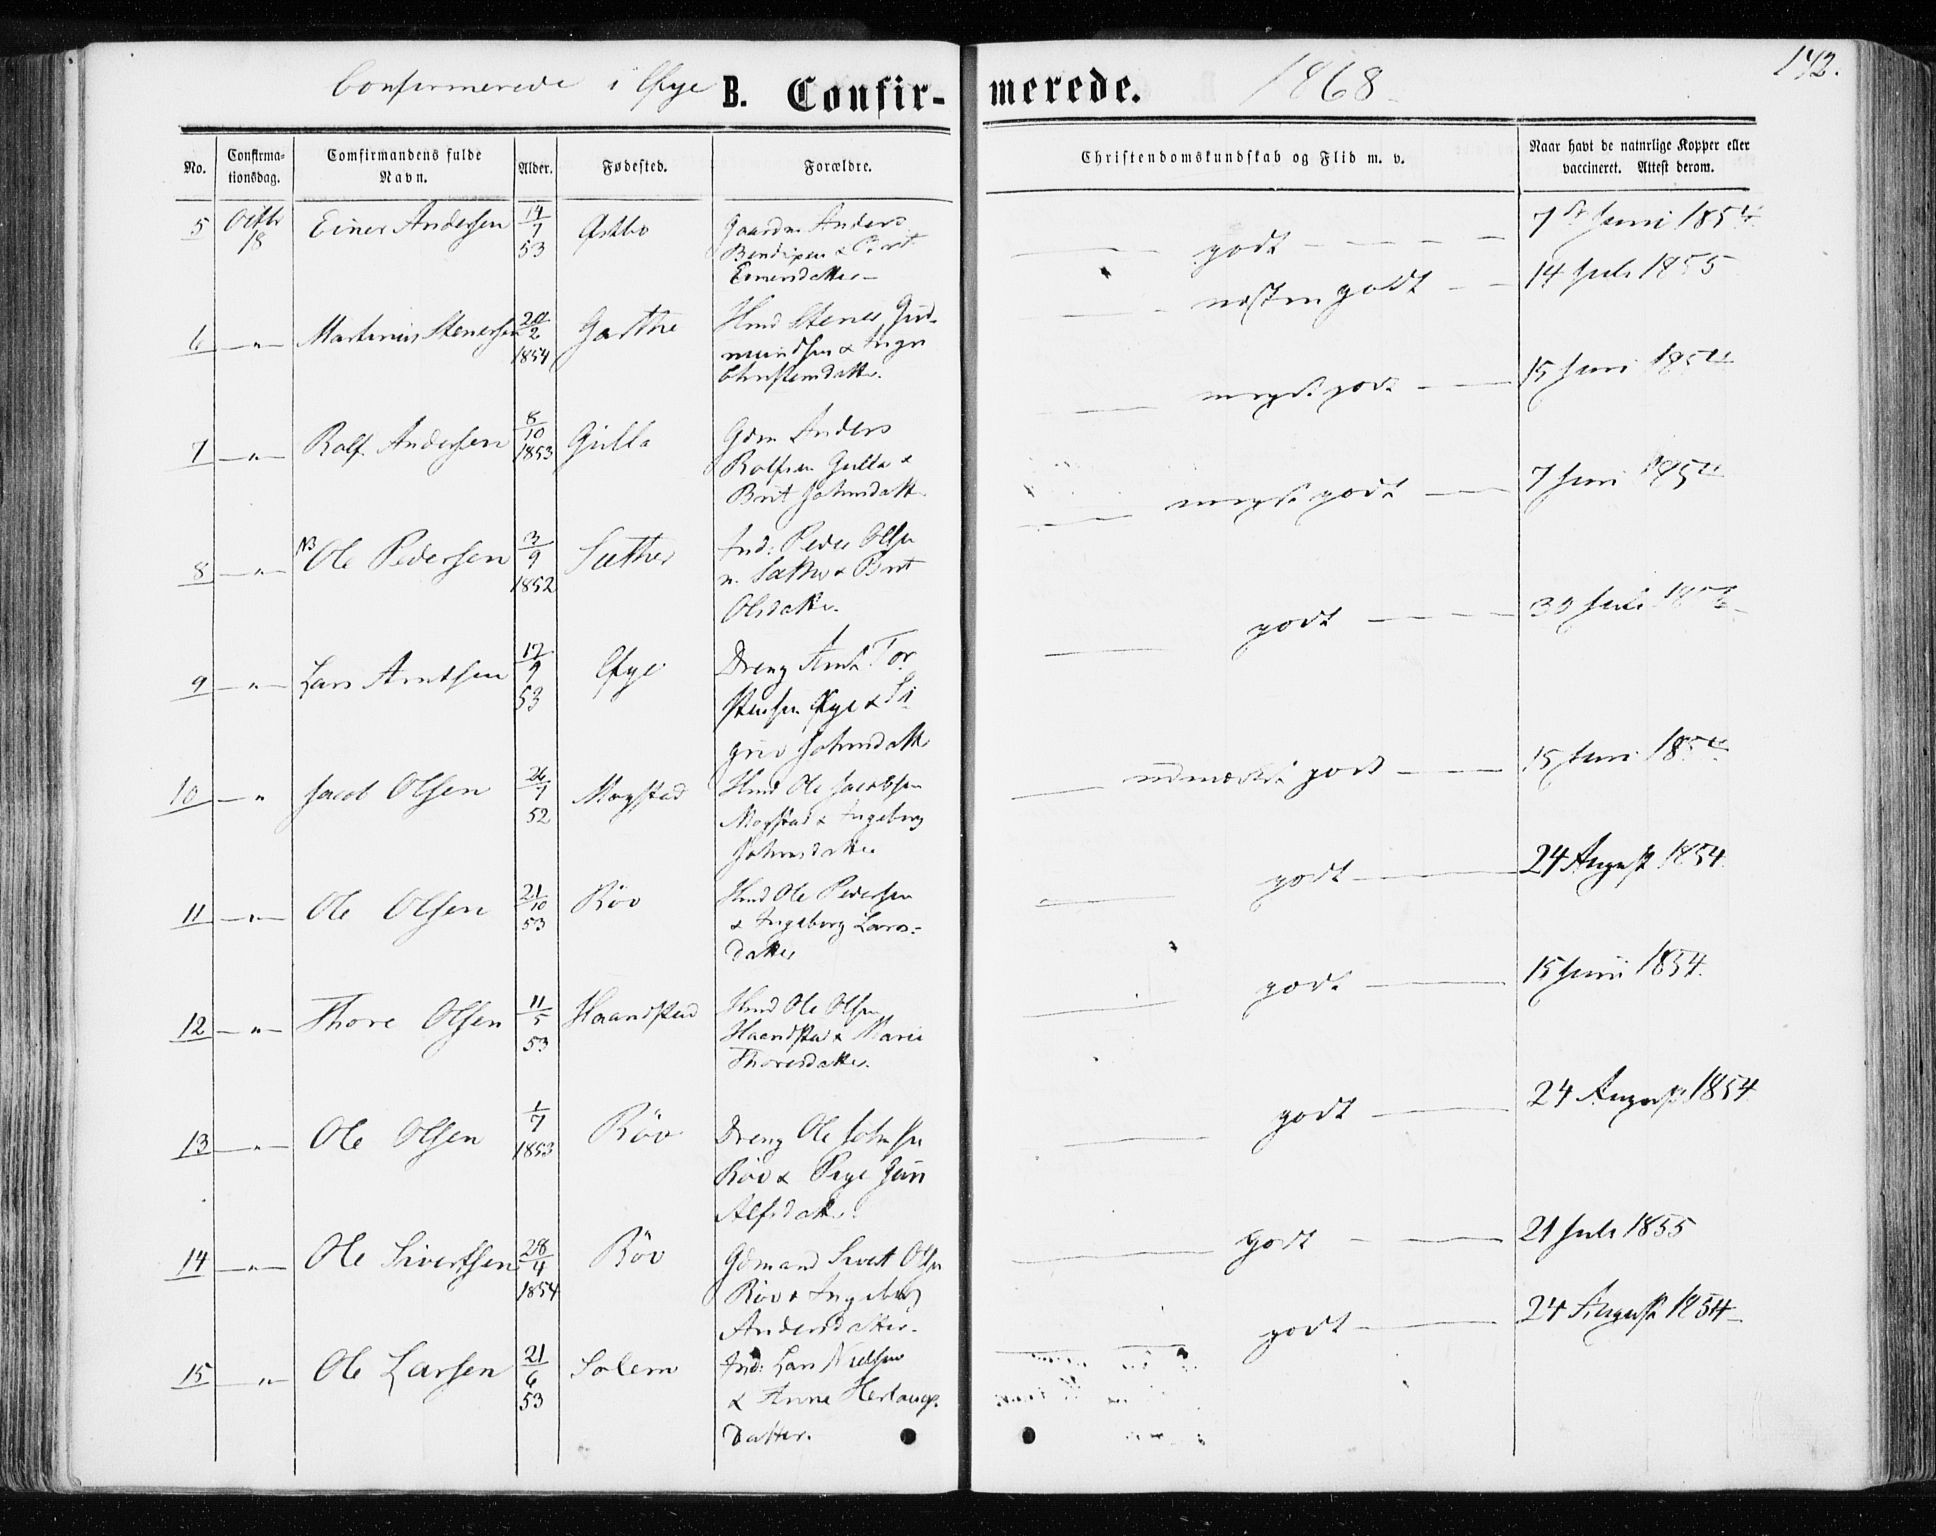 Confirmerede i Øye B. Confir-merede. 1868 142.
No. Confirma-tionsdag. Comfirmandens fulde Navn. Alder. Fødested. Forældre. Christendomskundskab og Flid m. v. Naar havt de naturlige Kopper eller vaccineret. Attest derom.
5 Octbr 18 Einer Andersen 14/7 53 Østbø Gaardm. Anders
Bendixen & Brit
Einersdatter godt 7de Juni 1854
6 " Martinius Stenersen 20/2 1854 Garthe Hmd Stener Gud-
mundsen & Ingr
Christensdatter. næsten godt 14 Juli 1855
7 " Rolf Andersen 8/10 1853 Gulla Gdm Anders
Rolfsen Gulla &
Brit Johnsdatt. meget godt 15 Juni 1854
8 " NB Ole Pedersen 3/9 1852 Sæther Ind: Peder Olsen
n. Sæther & Brit
Olsdatter. meget godt 7 Juni 1854
9 " Lars Arntsen 17/9 53 Øye Dreng Arnt Tor
stensen Øye & Si
grid Johnsdatt godt 30 Juli
10 " Jacob Olsen 26/7 52 Mogstad Hmd Ole Jacobsen
Mogstad & Ingeborg
Johnsdatter udmærket godt 15 Juni 1854
11 " Ole Olsen 21/10 53 Röv Hmd Ole Pedersen
& Ingeborg Lars-
datter godt 24 August 1854
12 " Thore Olsen 11/5 53 Haandstad Hmd Ole Olsen
Haandstad & Marie
Thoresdatter. godt 15 Juni 1854.
13 " Ole Olsen 1/7 1853 Röv Dreng Ole Johnsen
Röv & Pige Guri
Alfsdatter. godt 24 August 1854
14 " Ole Sivertsen 28/4 1854 Röv Gdmand Sivert Olsen
Röv & Ingeborg
Andersdatter. godt 21 Juli 1855
15 " Ole Larsen 21/6 53 Solem Ind: Lars Nielsen
& Anne Herlaugs
datter. godt 24 August 1854